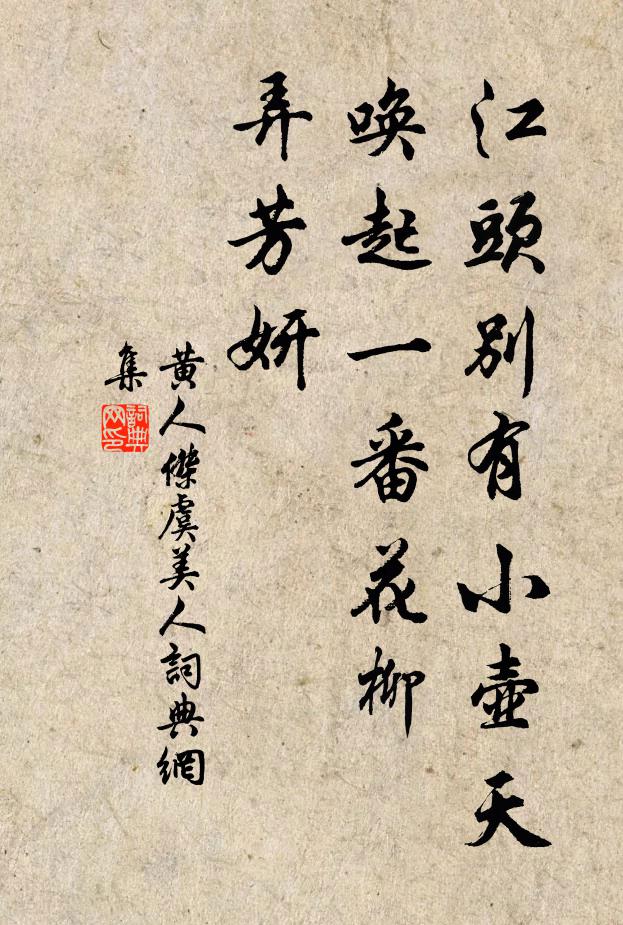 江頭別有小壺天
喚起一番花柳
弄芳妍
黃人傑虞美人詞典網
集
詞典網印